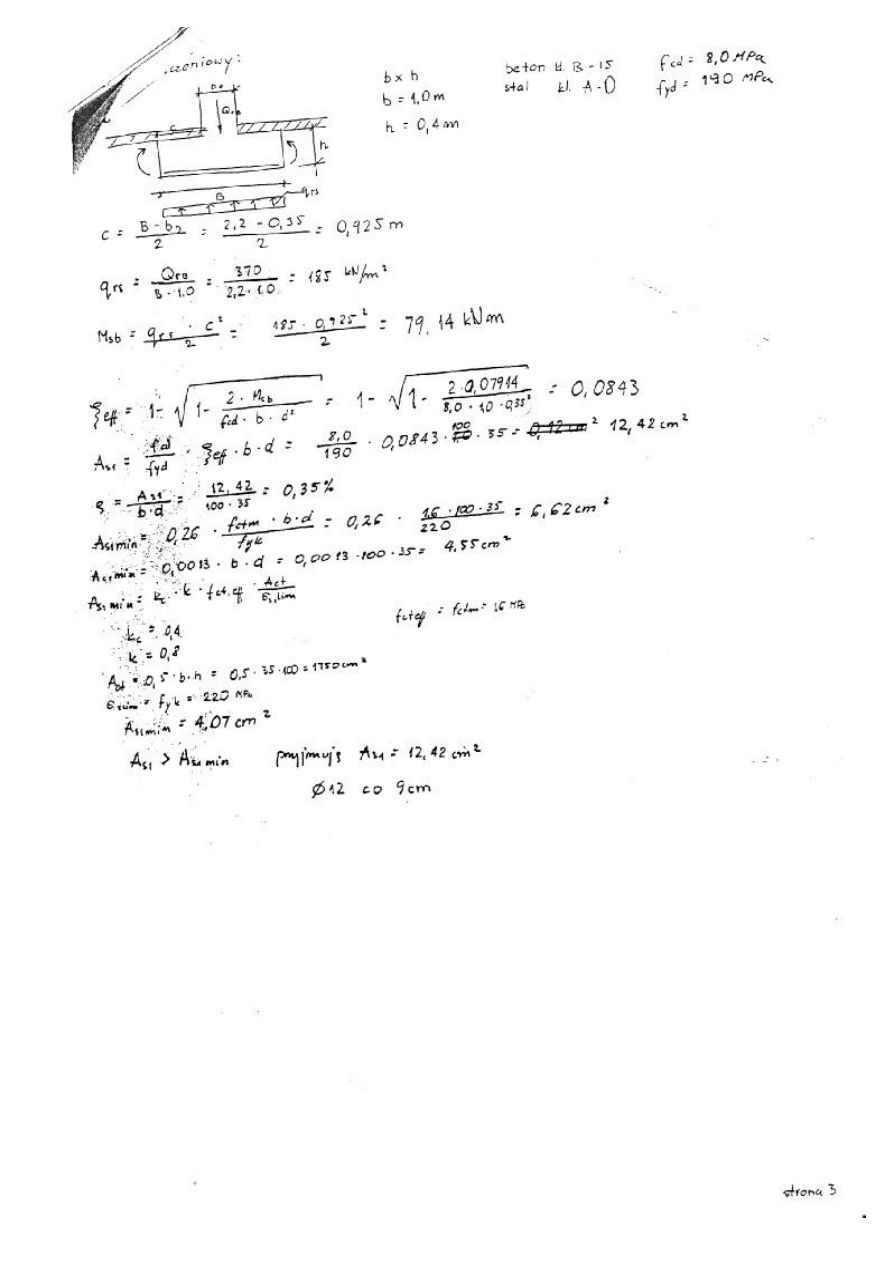 czeniowy:
b x h
b = 1,0m
h = 0,4m
beton kl. B-15
stal kl. A-0
fcd = 8,0 MPa
fyd = 190 MPa
C
h
B
qrs
C = (B - b2)/2 = (2,2 - 0,35)/2 = 0,925 m
qrs = Qrs/(B · 1,0) = 370/(2,2 · 1,0) = 185 kN/m²
Msb = (qrs · C²)/2 = (185 · 0,925²)/2 = 79,14 kNm
ξeff = 1 - √(1 - (2 · Msb)/(fcd · b · d²)) = 1 - √(1 - (2 · 0,07914)/(8,0 · 1,0 · 0,35²)) = 0,0843
As1 = fcd/fyd · ξeff · b · d = 8,0/190 · 0,0843 · 100 · 35 = 12,42 cm²
ς = As1/(b·d) = 12,42/(100 · 35) = 0,35%
As1min = 0,26 · (fctm · b·d)/fyk = 0,26 · (1,6 · 100 · 35)/220 = 6,62 cm²
As1min = 0,0013 · b · d = 0,0013 · 100 · 35 = 4,55 cm²
As1 min = kc · k · fct,eff · Act/σs,lim
fcteff = fctm = 1,6 MPa
kc = 0,4
k = 0,8
Act = 0,5 · b·h = 0,5 · 35 · 100 = 1750 cm²
σslim = fyk = 220 MPa
As1min = 4,07 cm²
As1 > As1 min przyjmuję As1 = 12,42 cm²
Ø12 co 9cm
strona 3